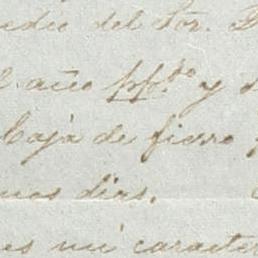 edio del Sor.
año ppdo y
caja de fierro
nos dias.
es mi caracter